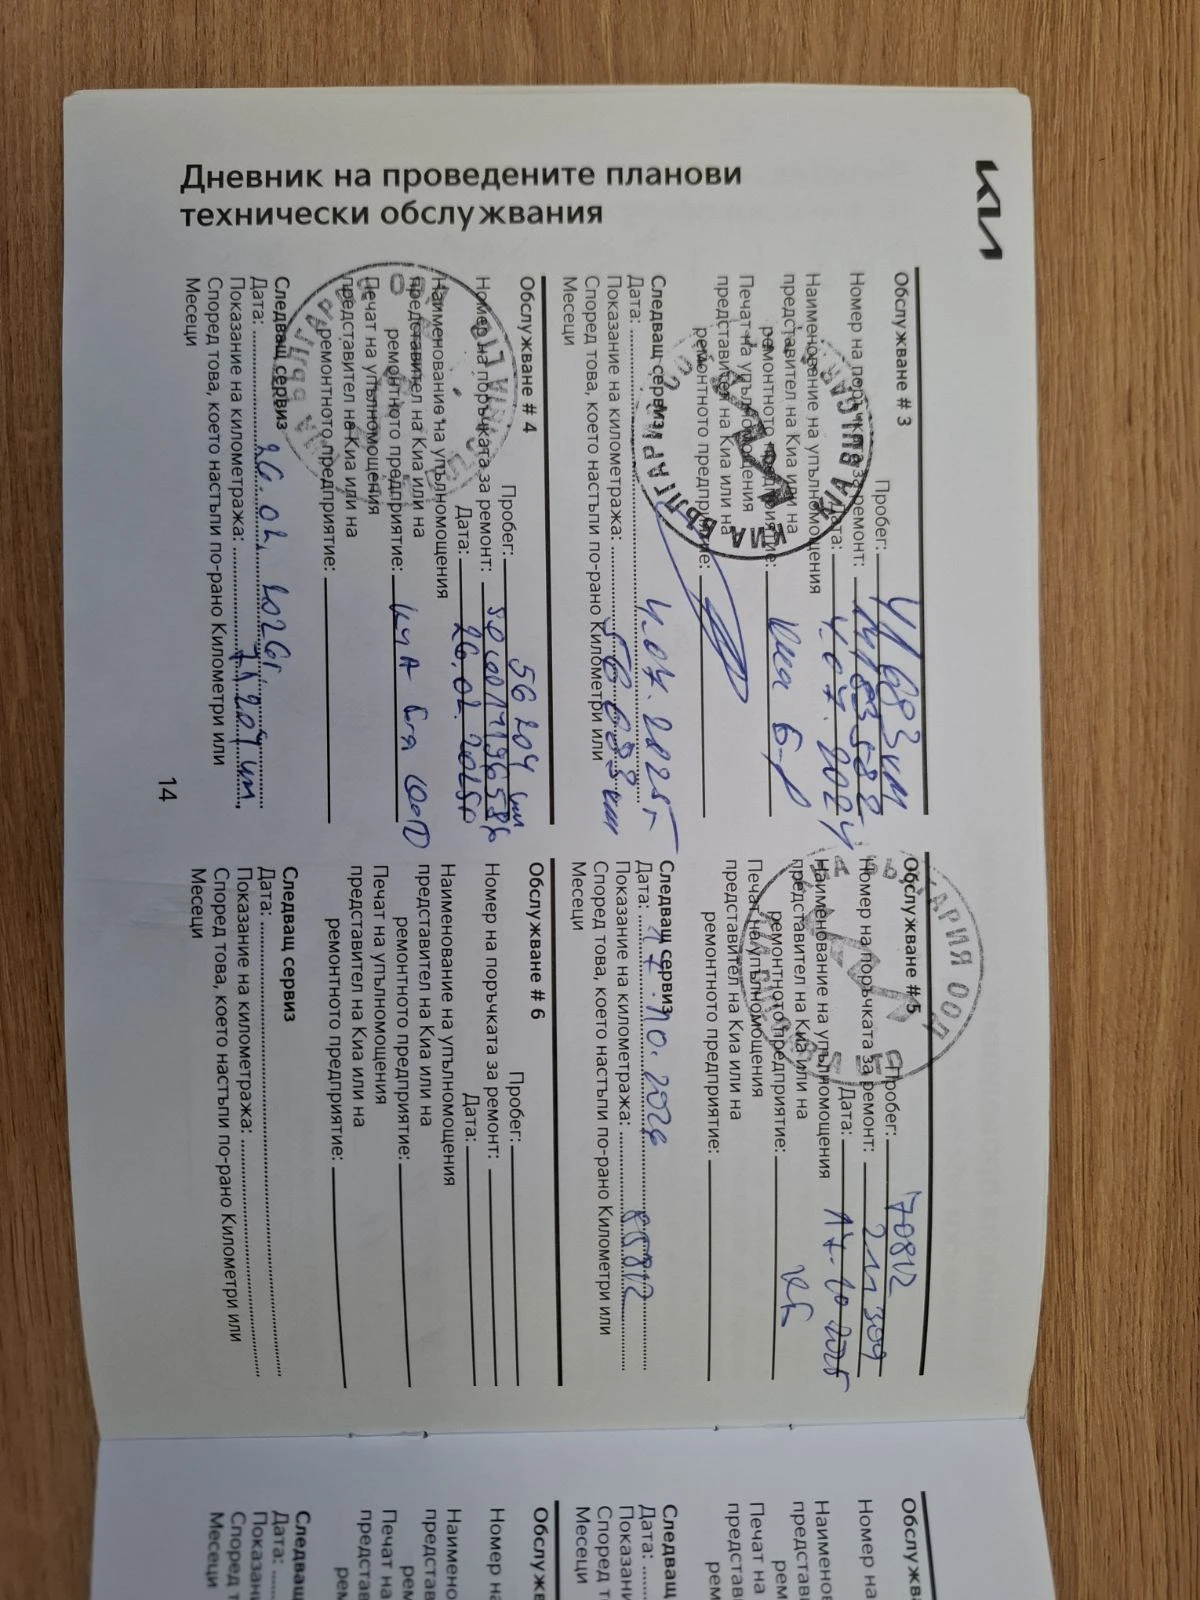 Дневник на проведените планови
технически обслужвания
KIA
Обслужване # 3
Пробег: 41683 км
Номер на поръчката за ремонт:
Дата: 4.07.2024
Наименование на упълномощения
представител на Киа или на
ремонтното предприятие: Киа
Печат на упълномощения
представител на Киа или на
ремонтното предприятие:
Следващ сервиз
Дата: 4.07.2025г
Показание на километража: 56683 км
Според това, което настъпи по-рано Километри или
Месеци
Обслужване # 4
Пробег: 56204 км
Номер на поръчката за ремонт:
Дата: 26.02.2025г
Наименование на упълномощения
представител на Киа или на
ремонтното предприятие:
Печат на упълномощения
представител на Киа или на
ремонтното предприятие:
Следващ сервиз
Дата: 26.02.2026г.
Показание на километража: 71204 км.
Според това, което настъпи по-рано Километри или
Месеци
14
Обслужване # 5
Пробег: 70812
Номер на поръчката за ремонт: 211309
Дата: 17.10.2025
Наименование на упълномощения
представител на Киа или на
ремонтното предприятие:
Печат на упълномощения
представител на Киа или на
ремонтното предприятие:
Следващ сервиз
Дата: 17.10.2026
Показание на километража: 85812
Според това, което настъпи по-рано Километри или
Месеци
Обслужване # 6
Пробег:
Номер на поръчката за ремонт:
Дата:
Наименование на упълномощения
представител на Киа или на
ремонтното предприятие:
Печат на упълномощения
представител на Киа или на
ремонтното предприятие:
Следващ сервиз
Дата:
Показание на километража:
Според това, което настъпи по-рано Километри или
Месеци
КИА БЪЛГАРИЯ ООД
KIA BULGARIA